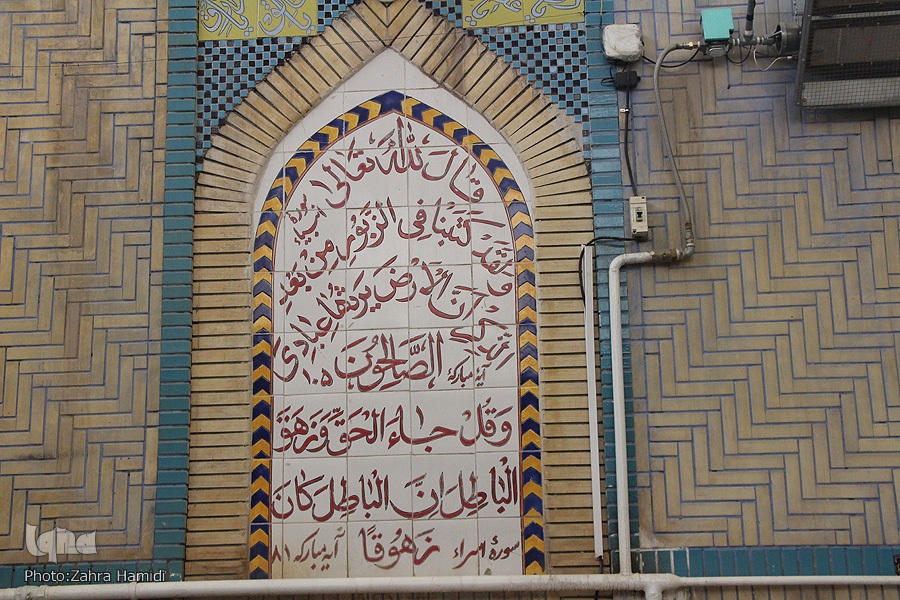 قَالَ اللّٰهُ تَعَالى سورهٔ انبیا
وَلَقَدْ كَتَبْنَا فِى الزَّبُورِ مِنْ بَعْدِ
الذِّكْرِ اَنَّ الْاَرْضَ يَرِثُهٰا عِبٰادِىَ
الصَّالِحُونَ آیهٔ مبارکهٔ ۱۰۵
وَقُلْ جٰاءَ الْحَقُّ وَزَهَقَ
الْبٰاطِلُ اِنَّ الْبٰاطِلَ كٰانَ
زَهُوقًا سورهٔ اسراء آیهٔ مبارکه ۸۱
iqna
Photo:Zahra Hamidi